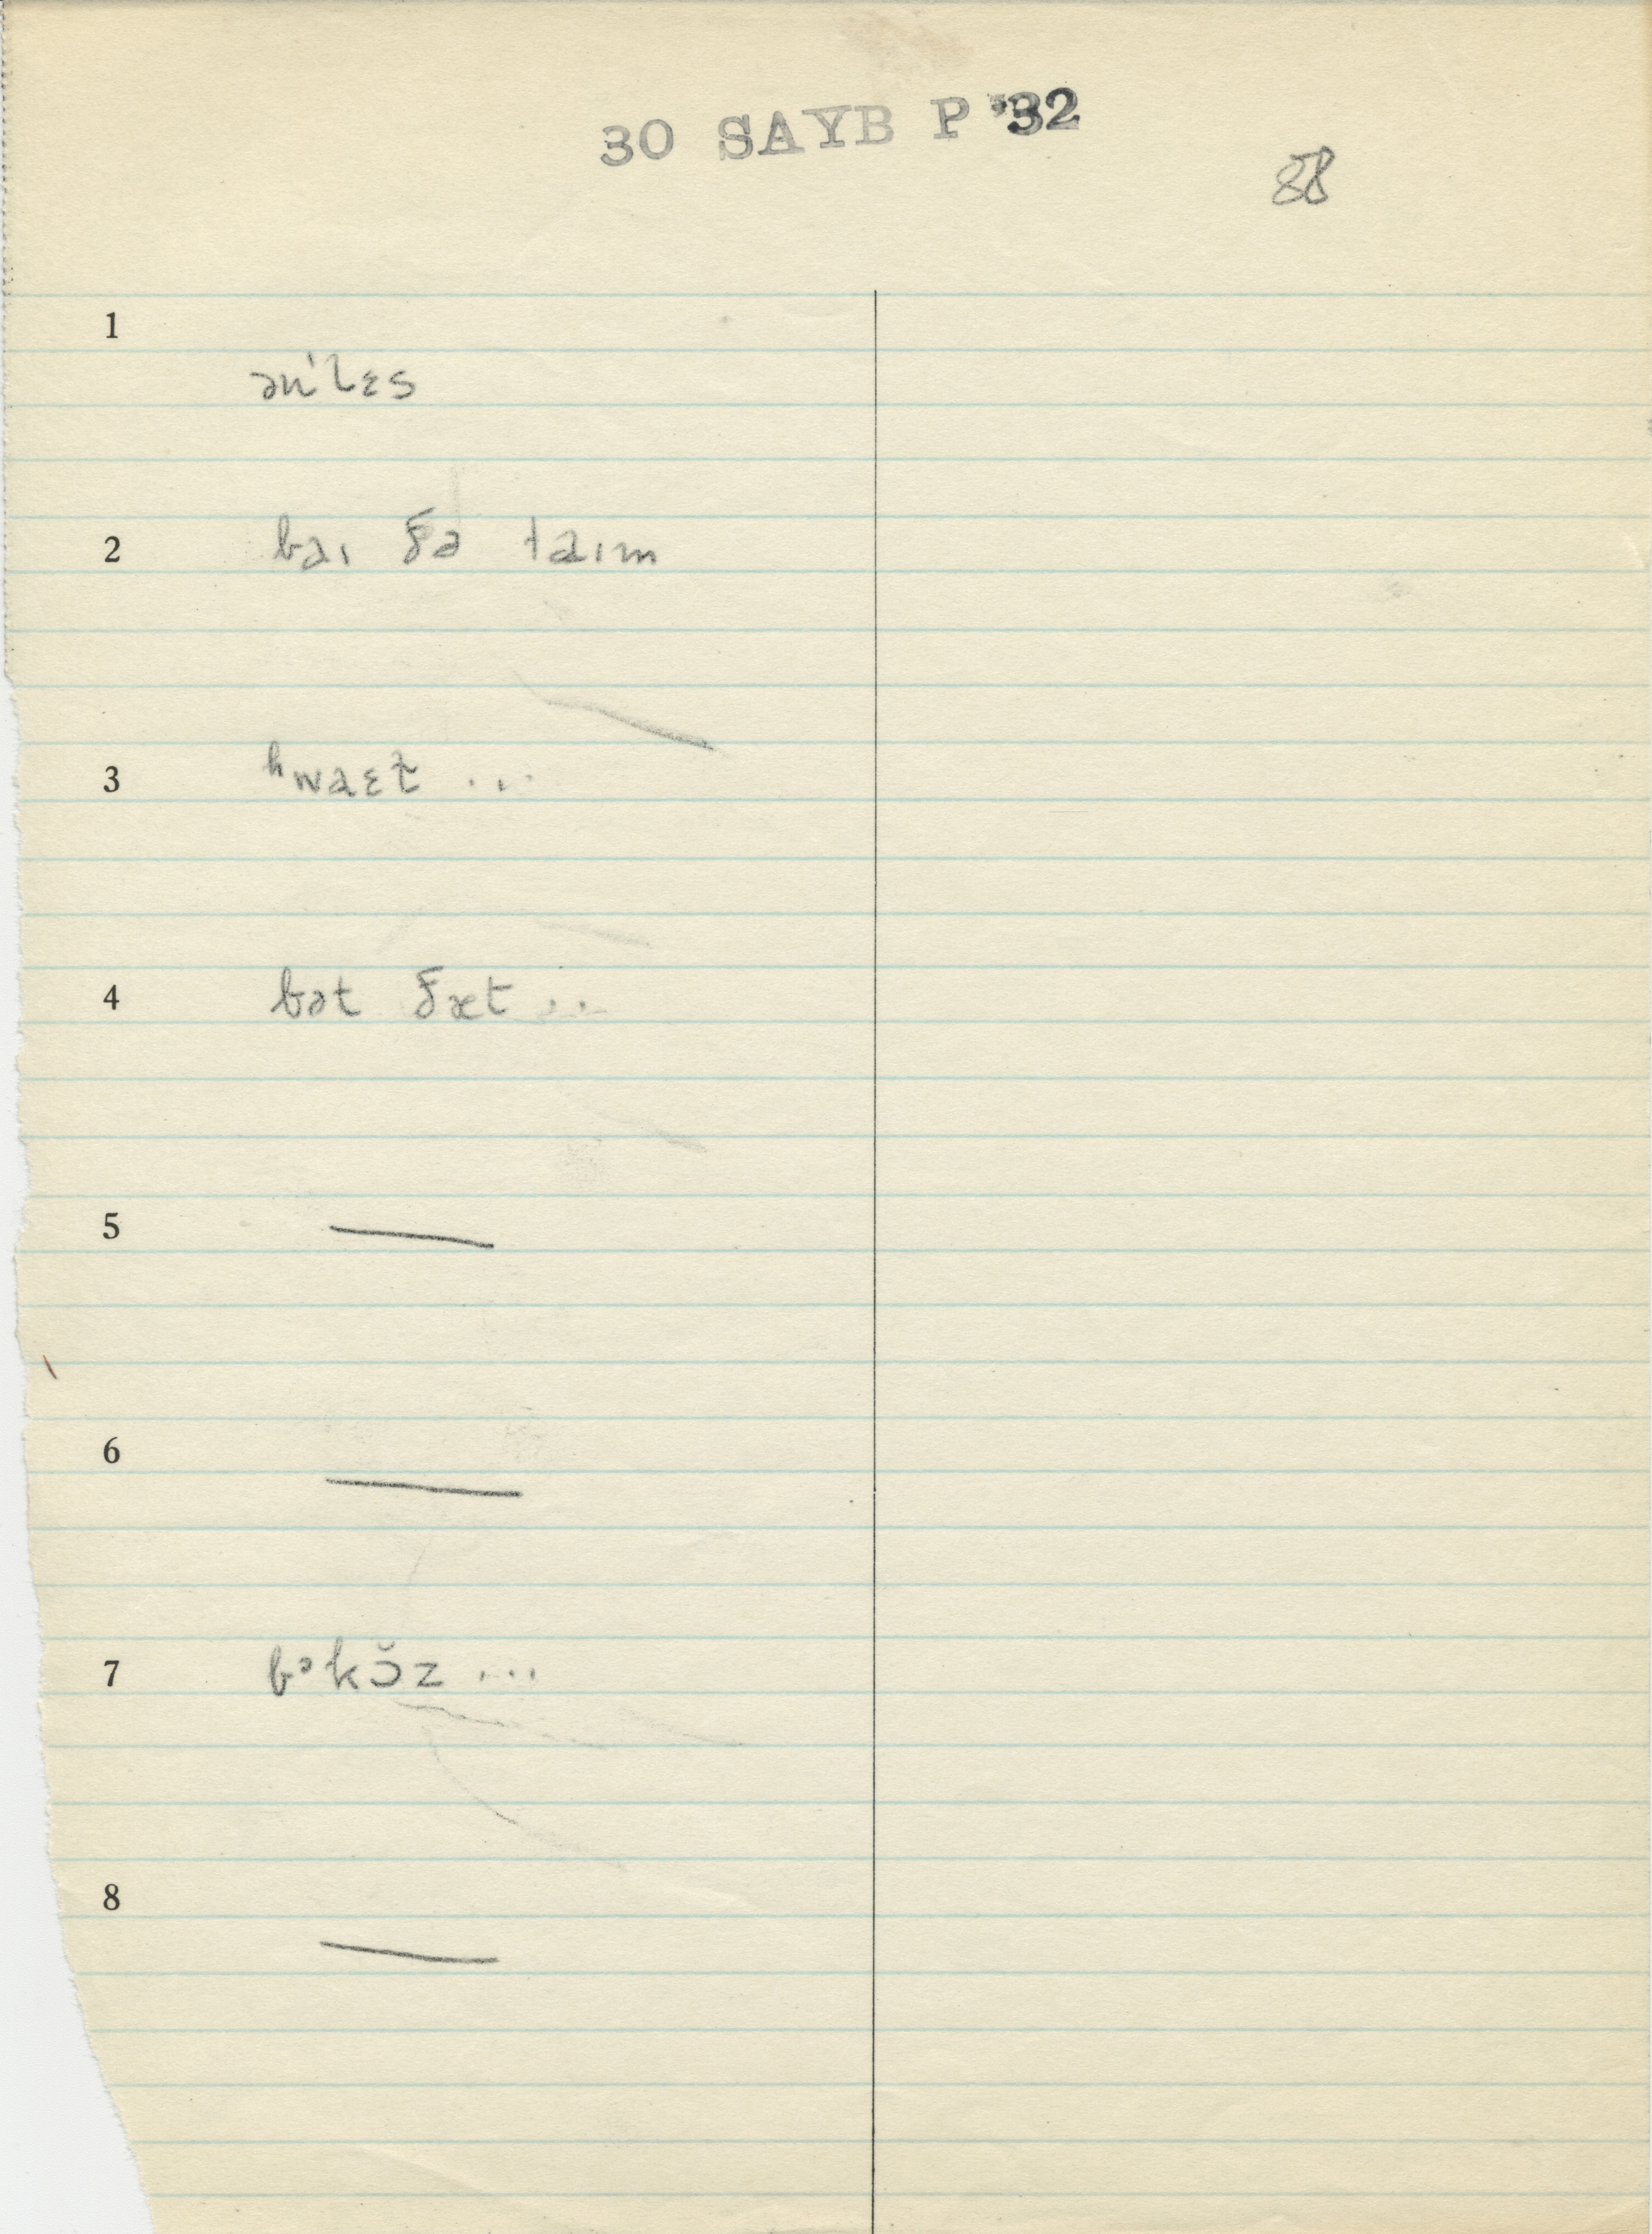 30 SAYB P '32
88
1
ənˈlɛs
2 baɪ ðə taɪm
3 ʰwaɛt ...
4 bət ðæt ...
5 —
6 —
7 bᵊkɔ̆z ...
8 —